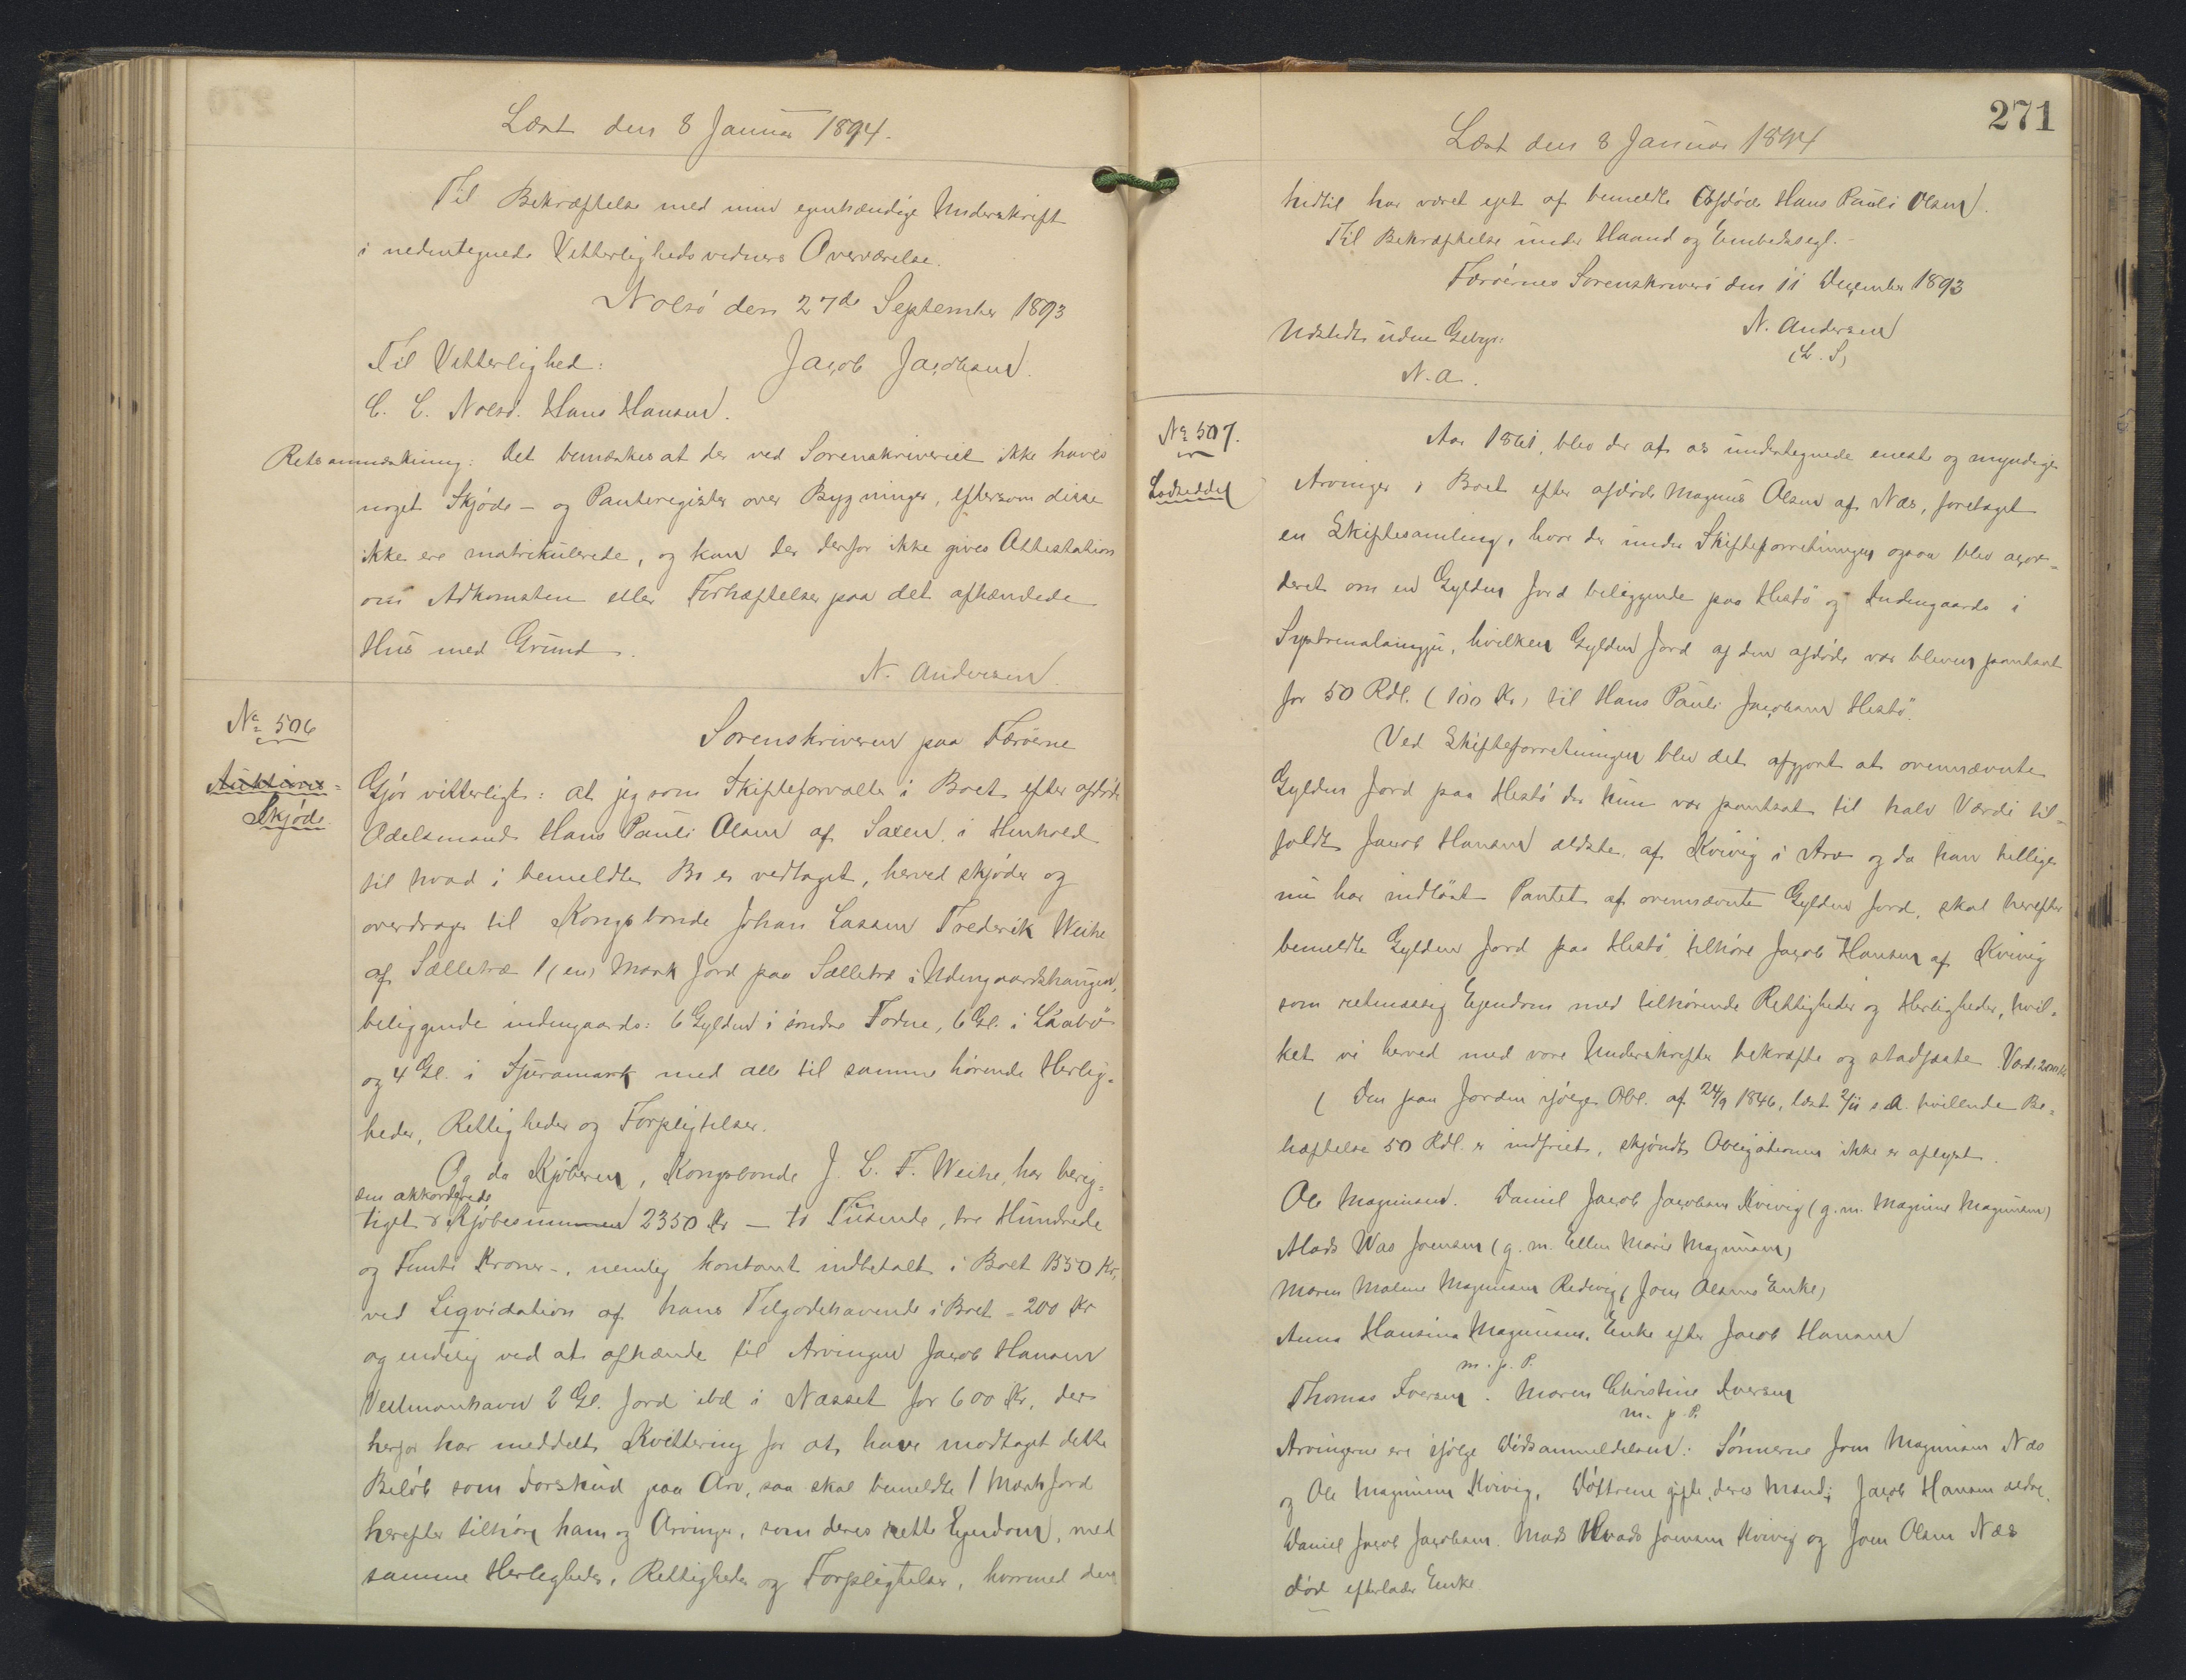 Læst den 8 Januar 1894.
Til Bekræftelse med min egenhændige Underskrift
i nedentegnede Vitterlighedsvidners Overværelse.
Nolsö den 27de September 1893
Til Vitterlighed: Jacob Jacobsen.
C. C. Nolsö. Hans Hansen.
Retsanmærkning: Det bemærkes at der ved Sorenskriveriet ikke haves
noget Skjöde- og Panteregister over Bygninger, eftersom disse
ikke ere matrikulerede, og kan der derfor ikke gives Attestation
om Adkomsten eller Forhæftelser paa det afhændede
Hus med Grund.
N. Andersen.
No 506
Auktions-
Skjöde
Sorenskriveren paa Færöerne
Gjör vitterligt: at jeg som Skifteforvalter i Boet efter afdöde
Odelsmand Hans Pauli Olsen af Saxen, i Henhold
til hvad i bemeldte Bo er vedtaget, herved skjöder og
overdrager til Kongsbonde Johan Lassen Frederik Weihe
af Sælletræ 1 (en) Mark Jord paa Sælletræ i Udengaardshaugen,
beliggende indengaards: 6 Gylden i söndre Todne, 6 Gl. i Láabö
og 4 Gl. i Sjuramark med alle til samme hörende Herlig-
heder, Rettigheder og Forpligtelser.
Og da Kjöberen, Kongsbonde J. L. F. Weihe, har berig-
den akkorderede
tiget Kjöbesummen 2350 Kr - to Tusende, tre Hundrede
og Femti Kroner -, nemlig kontant indbetalt i Boet 1550 Kr,
ved Liqvidation af hans Tilgodehavende i Boet = 200 Kr
og endelig ved at afhænde til Arvingen Jacob Hansen
Vestmanhavn 2 Gl. Jord ibd i Næsset for 600 Kr, der
herfor har meddelt Kvittering for at have modtaget dette
Belöb som Forskud paa Arv, saa skal bemeldte 1 Mark Jord
herefter tilhöre ham og Arvinger, som deres rette Ejendom, med
samme Herligheder, Rettigheder og Forpligtelser, hvormed den
271
Læst den 8 Januar 1894
hidtil har været ejet af bemeldte Afdöde Hans Pauli Olsen.
Til Bekræftelse under Haand og Embedssegl.-
Færöernes Sorenskriveri den 11 December 1893
N. Andersen
Udstedt uden Gebyr. (L. S)
N. A.
No 507.
Lodseddel
Aar 1861, blev der af os undertegnede eneste og myndige
Arvinger i Boet efter afdöde Magnus Olsen af Næs, foretaget
en Skiftesamling, hvor der under Skifteforretningen ogsaa blev acor-
deret om en Gylden Jord beliggende paa Hestö og Indengaards i
hvilken Gylden Jord af den afdöde var bleven pantsat
for 50 Rdl. (100 Kr) til Hans Pauli Jacobsen Hestö.
Ved Skifteforretningen blev det afgjort at ovennævnte
Gylden Jord paa Hestö der kun var pantsat til halv Værdi til-
faldt Jacob Hansen ældste, af Kvivig i Arv og da han tillige
nu har indlöst Pantet af ovennævnte Gylden Jord, skal herefter
bemeldte Gylden Jord paa Hestö tilhöre Jacob Hansen af Kvivig
som retmæssig Ejendom med tilhörende Rettigheder og Herligheder, hvil-
ket vi herved med vore Underskrifter bekræfte og stadfæste. Værdi 200 Kr
( Den paa Jorden ifölge Obl. af 24/9 1846, læst 2/11 s. A. hvilende Be-
hæftelse 50 Rdl. er indfriet, skjöndt Obligationen ikke er aflyst.
Ole Magnussen. Daniel Jacob Jacobsen Kvivig (g. m. Magnine Magnussen)
Mads Was Joensen (g. m. Ellen Marie Magnussen)
Maren Malene Magnussen (Joen Olsens Enke)
Anna Hansina Magnussen, Enke efter Jacob Hansen
m. f. P.
Thomas Iversen. Maren Christine Iversen
m. p. P.
Arvingerne ere ifölge Dödsanmeldelsen: Sönnerne Joen Magnussen Næs
og Ole Magnussen Kvivig, Döttrene gifte, deres Mænd; Jacob Hansen ældre,
Daniel Jacob Jacobsen. Mads Hvads Joensen Kvivig og Joen Olsen Næs
död efterlader Enke